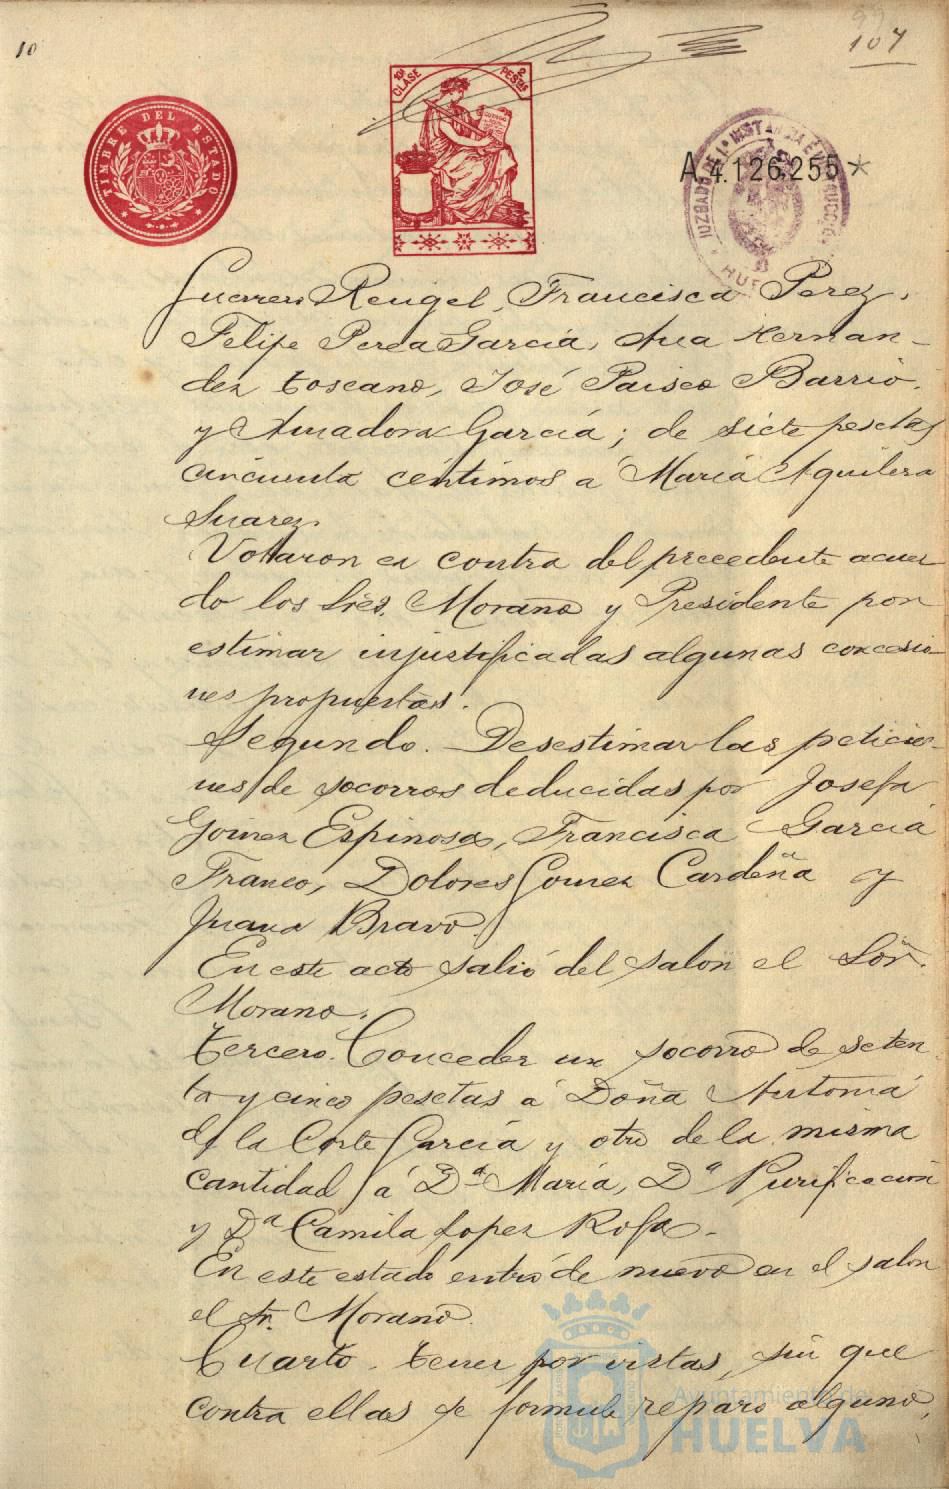 10
99
107
TIMBRE DEL ESTADO
10ª CLASE
2 PESTAS
A.4.126.255*
JUZGADO DE 1ª INSTANCIA E INSTRUCCION
HUE
Guerrero Rengel, Francisca Perez,
Felipe Perea García, Ana Hernan-
dez Toscano, José Paisco Barrio,
y Amadora García; de siete pesetas
cincuenta céntimos á María Aguilera
Suarez.
Votaron en contra del precedente acuer-
do los Sres. Morano y Presidente por
estimar injustificadas algunas concesio-
nes propuestas.
Segundo. Desestimar las peticio-
nes de socorros deducidas por Josefa
Gomez Espinosa, Francisca García
Franco, Dolores Gomez Cardeña y
Juana Bravo.
En este acto salió del salon el Sor.
Morano.
Tercero. Conceder un socorro de seten-
ta y cinco pesetas á Doña Antonia
de la Corte García y otro de la misma
cantidad á Dª María, Dª Purificacion
y Dª Camila Lopez Rosa.
En este estado entró de nuevo en el salon
el Sr. Morano.
Cuarto. Tener por vistas, sin que
contra ellas se formule reparo alguno,
Ayuntamiento de
HUELVA